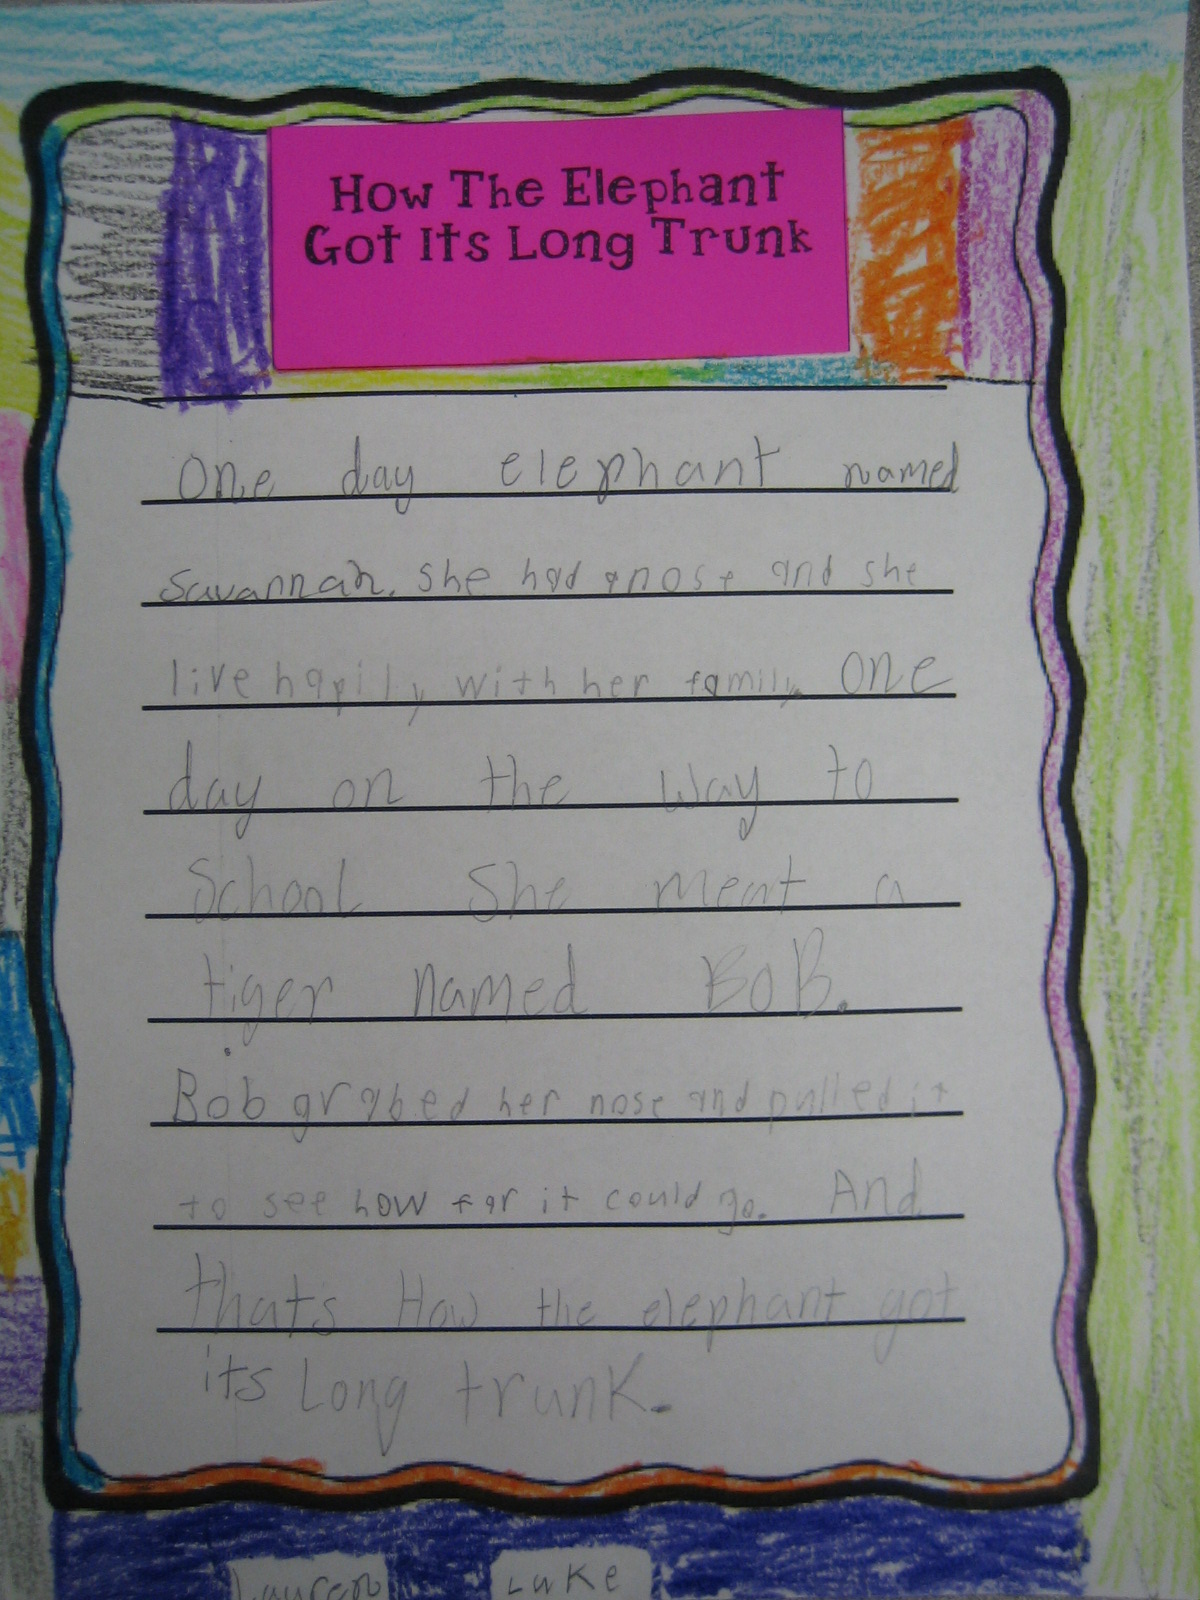 How The Elephant
Got Its Long Trunk
One day elephant named
Savannah. She had a nose and she
live happily with her family. One
day on the way to
School She meat a
tiger named BoB.
Bob grabed her nose and pulled it
to see how far it could go. And
thats How the elephant got
its Long trunk.
Lauren Luke